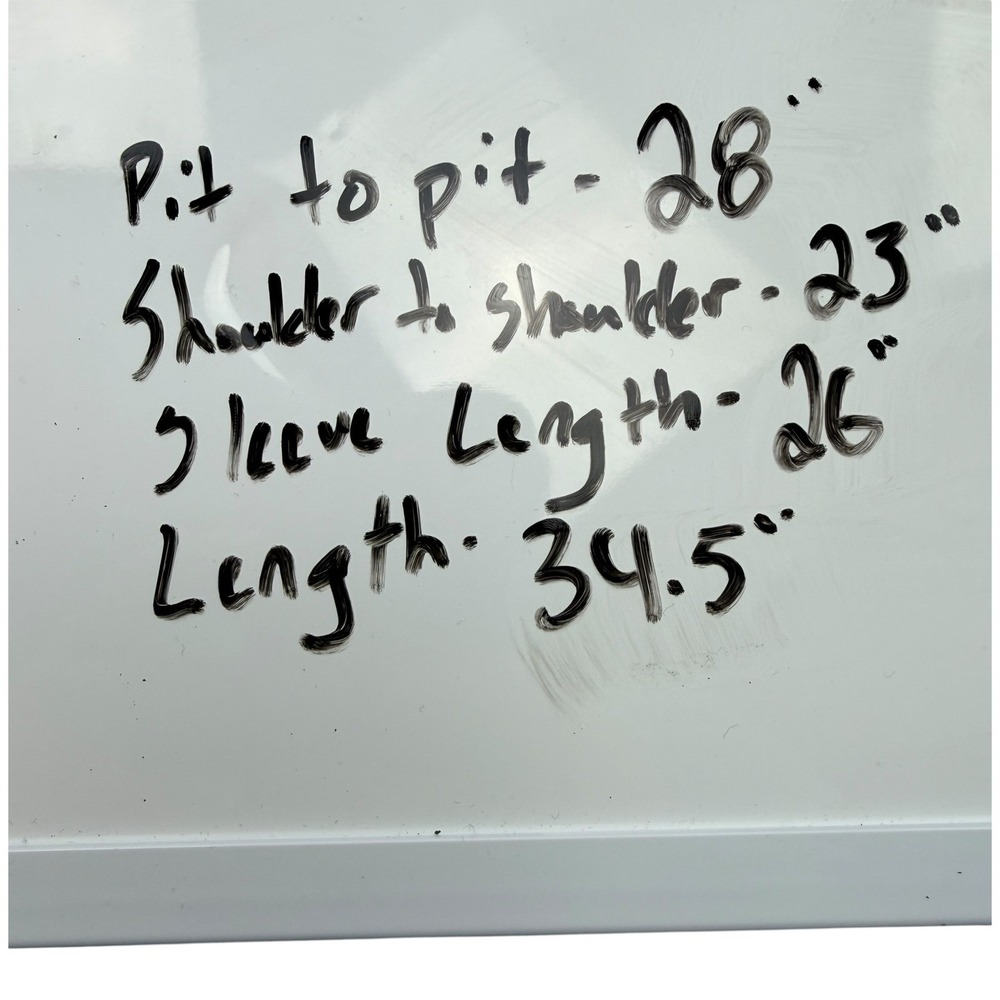 Pit to pit - 28"
Shoulder to shoulder - 23"
Sleeve Length - 26"
Length - 34.5"